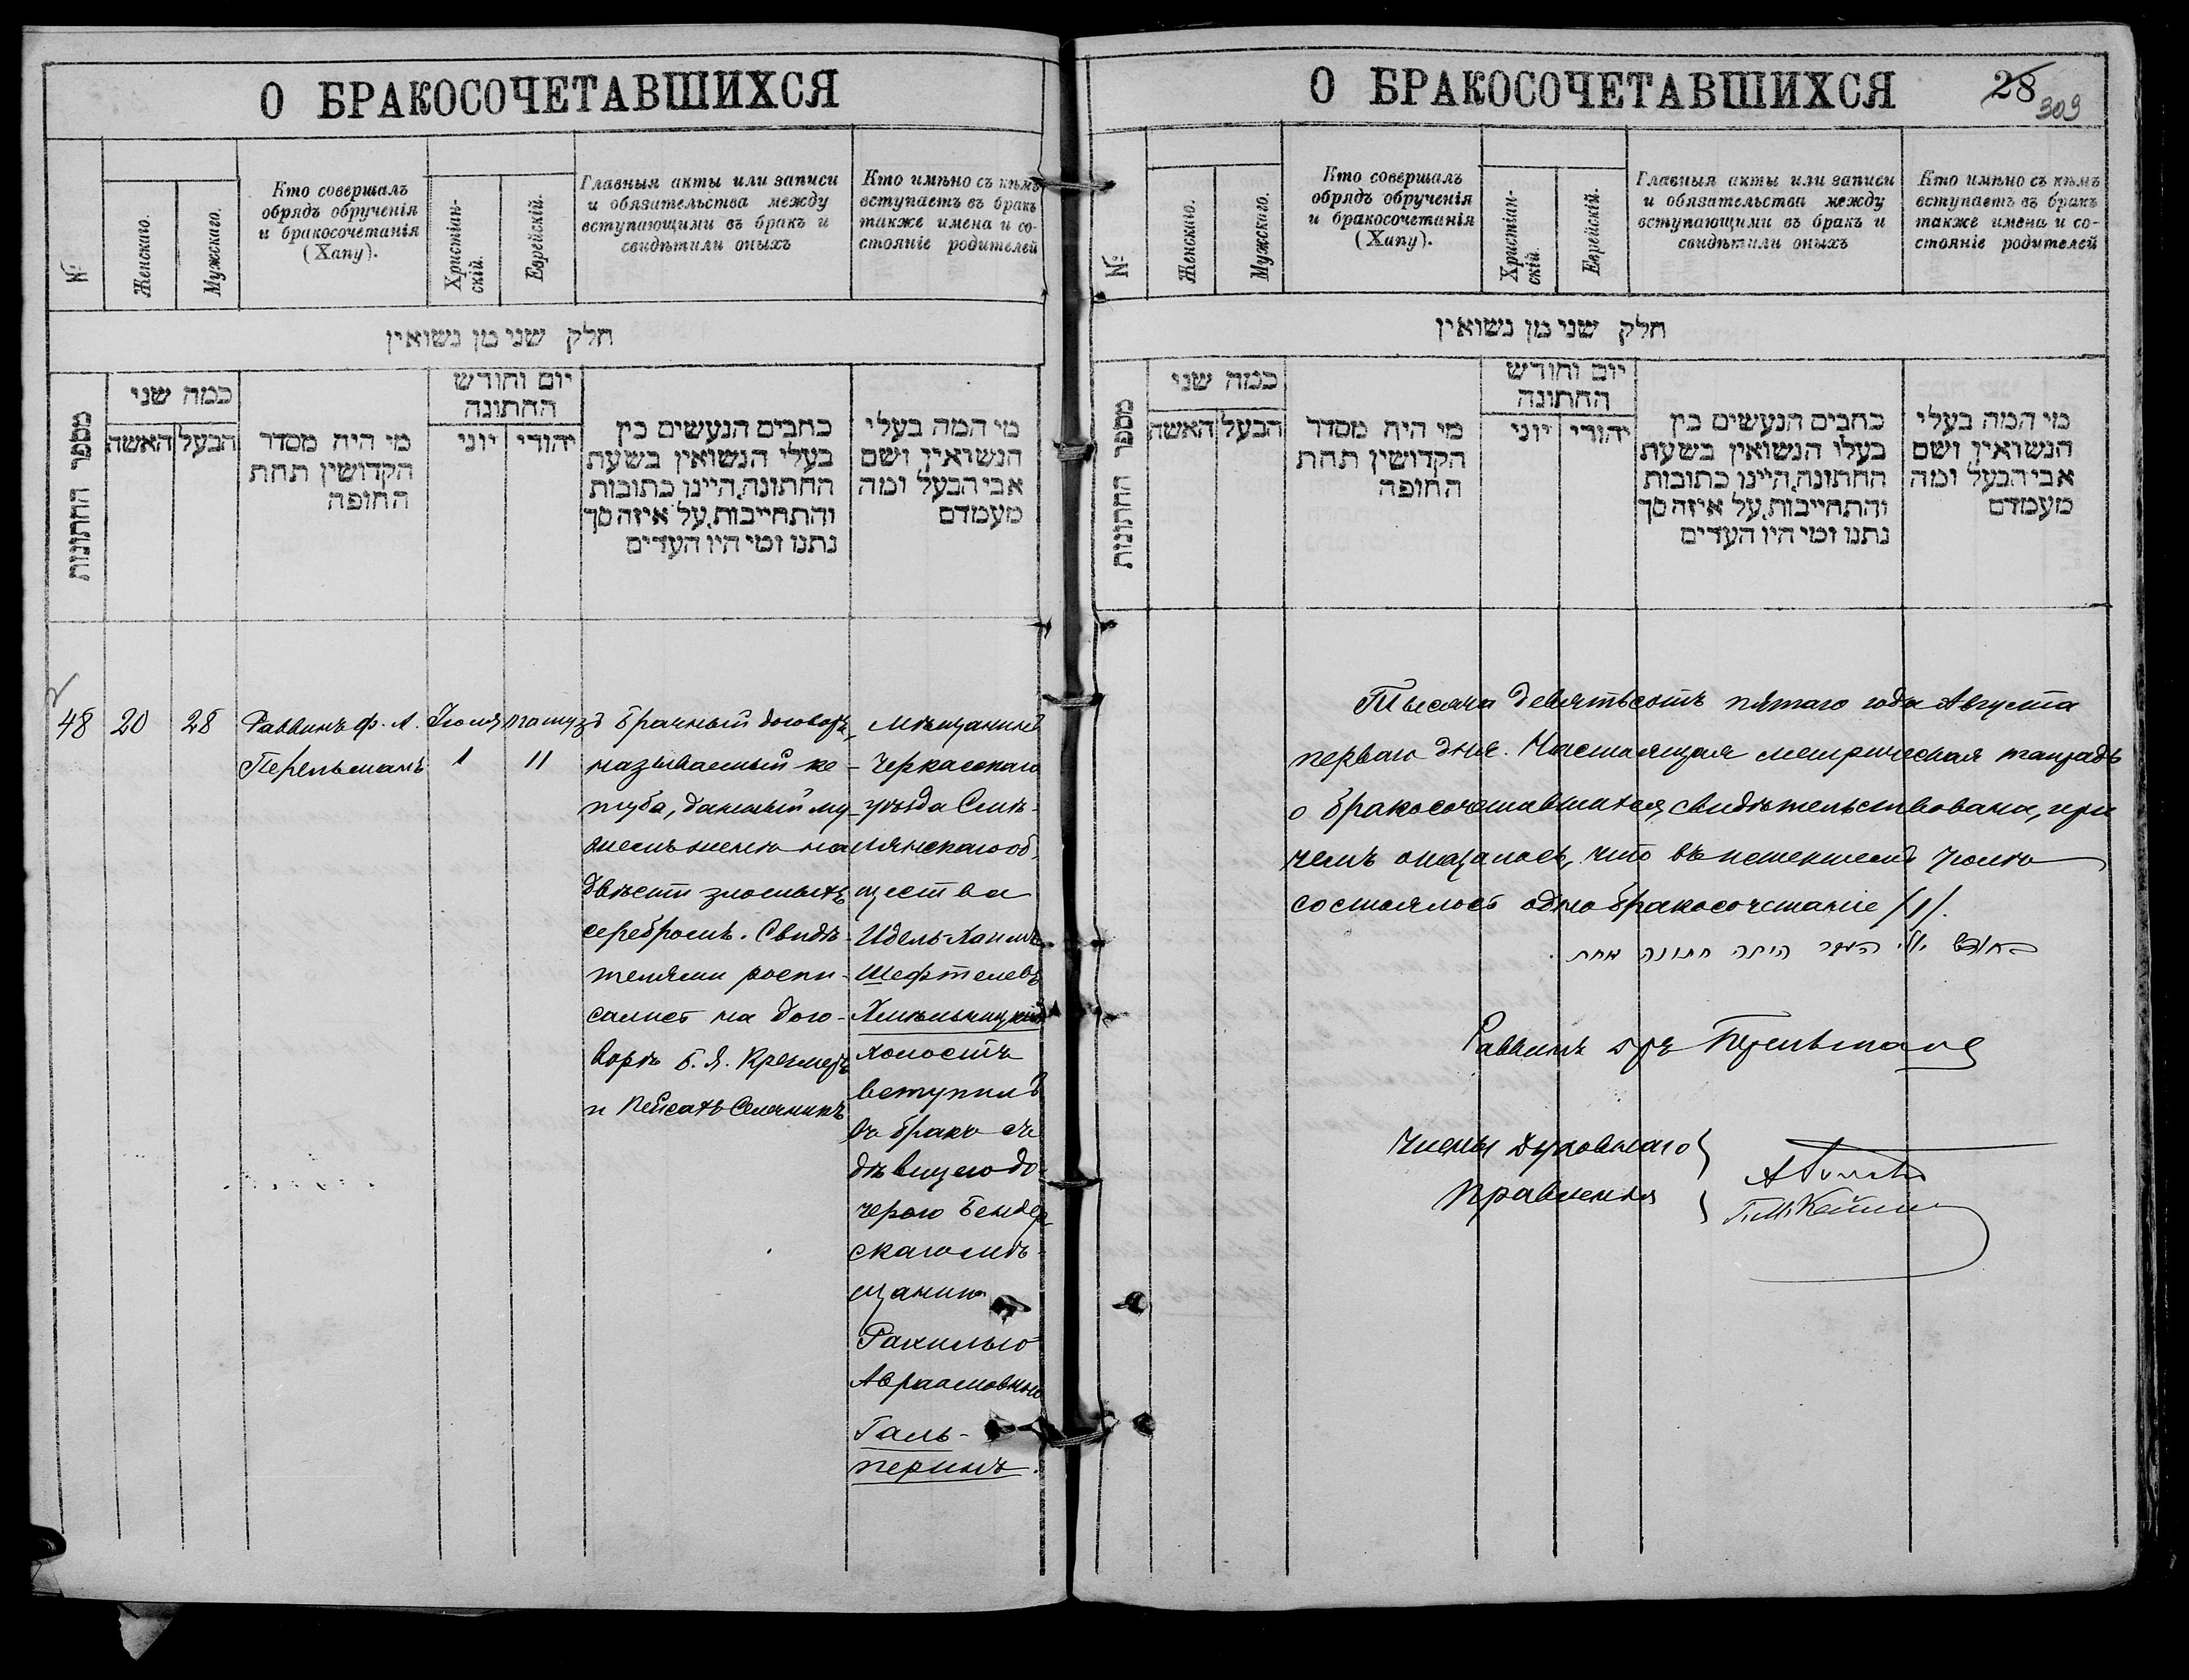 О БРАКОСОЧЕТАВШИХСЯ
№
Женскаго.
Мужскаго.
Кто совершалъ
обрядъ обрученія
и бракосочетанія
(Хапу).
Христіан-
скій.
Еврейскій.
Главныя акты или записи
и обязательства между
вступающими въ бракъ и
свидѣтили оныхъ
Кто имѣно съ кѣмъ
вступаетъ въ бракъ
также имена и со-
стояніе родителей
חלק שני מן נשואין
מספר החתונות
כמה שני
האשה
הבעל
מי היה מסדר
הקדושין תחת
החופה
יום וחודש
החתונה
יוני
יהודי
כתבים הנעשים בין
בעלי הנשואין בשעת
החתונה, היינו כתובות
והתחייבות, על איזה סך
נתנו ומי היו העדים
מי המה בעלי
הנשואין ושם
אבי הבעל ומה
מעמדם
48
20
28
Раввинъ Ф. Л.
Перельманъ
Іюля
1
тамузъ
11
Брачный договоръ,
называемый ке-
туба, данный му-
жемъ женѣ на
двѣсти злотыхъ
серебромъ. Свидѣ-
телями роспи-
сались на дого-
ворѣ Б. Я. Кремеръ
и Пейсахъ Селяникъ
Мѣщанинъ
Черкасскаго
уѣзда Смѣ-
лянскаго об-
щества
Идель-Хаимъ
Шефтелевъ
Хмѣльницкій
холостъ
вступилъ
въ бракъ съ
дѣвицею до-
черью Бендер-
скаго мѣ-
щанина
Рахилью
Авраамовною
Галь-
перинъ.
О БРАКОСОЧЕТАВШИХСЯ
28
309
№
Женскаго.
Мужскаго.
Кто совершалъ
обрядъ обрученія
и бракосочетанія
(Хапу).
Христіан-
скій.
Еврейскій.
Главныя акты или записи
и обязательства между
вступающими въ бракъ и
свидѣтили оныхъ
Кто имѣно съ кѣмъ
вступаетъ въ бракъ
также имена и со-
стояніе родителей
חלק שני מן נשואין
מספר החתונות
כמה שני
האשה
הבעל
מי היה מסדר
הקדושין תחת
החופה
יום וחודש
החתונה
יוני
יהודי
כתבים הנעשים בין
בעלי הנשואין בשעת
החתונה, היינו כתובות
והתחייבות, על איזה סך
נתנו ומי היו העדים
מי המה בעלי
הנשואין ושם
אבי הבעל ומה
מעמדם
Тысяча девятьсотъ пятаго года Августа
перваго дня. Настоящая метрическая тетрадь
о бракосочетавшихся свидѣтельствована, при
чемъ оказалось, что въ истекшемъ Іюлѣ
состоялось одно бракосочетаніе /1/.
היתה חתונה אחת.
Раввинъ д-ръ Перельманъ
Члены Духовнаго
Правленія